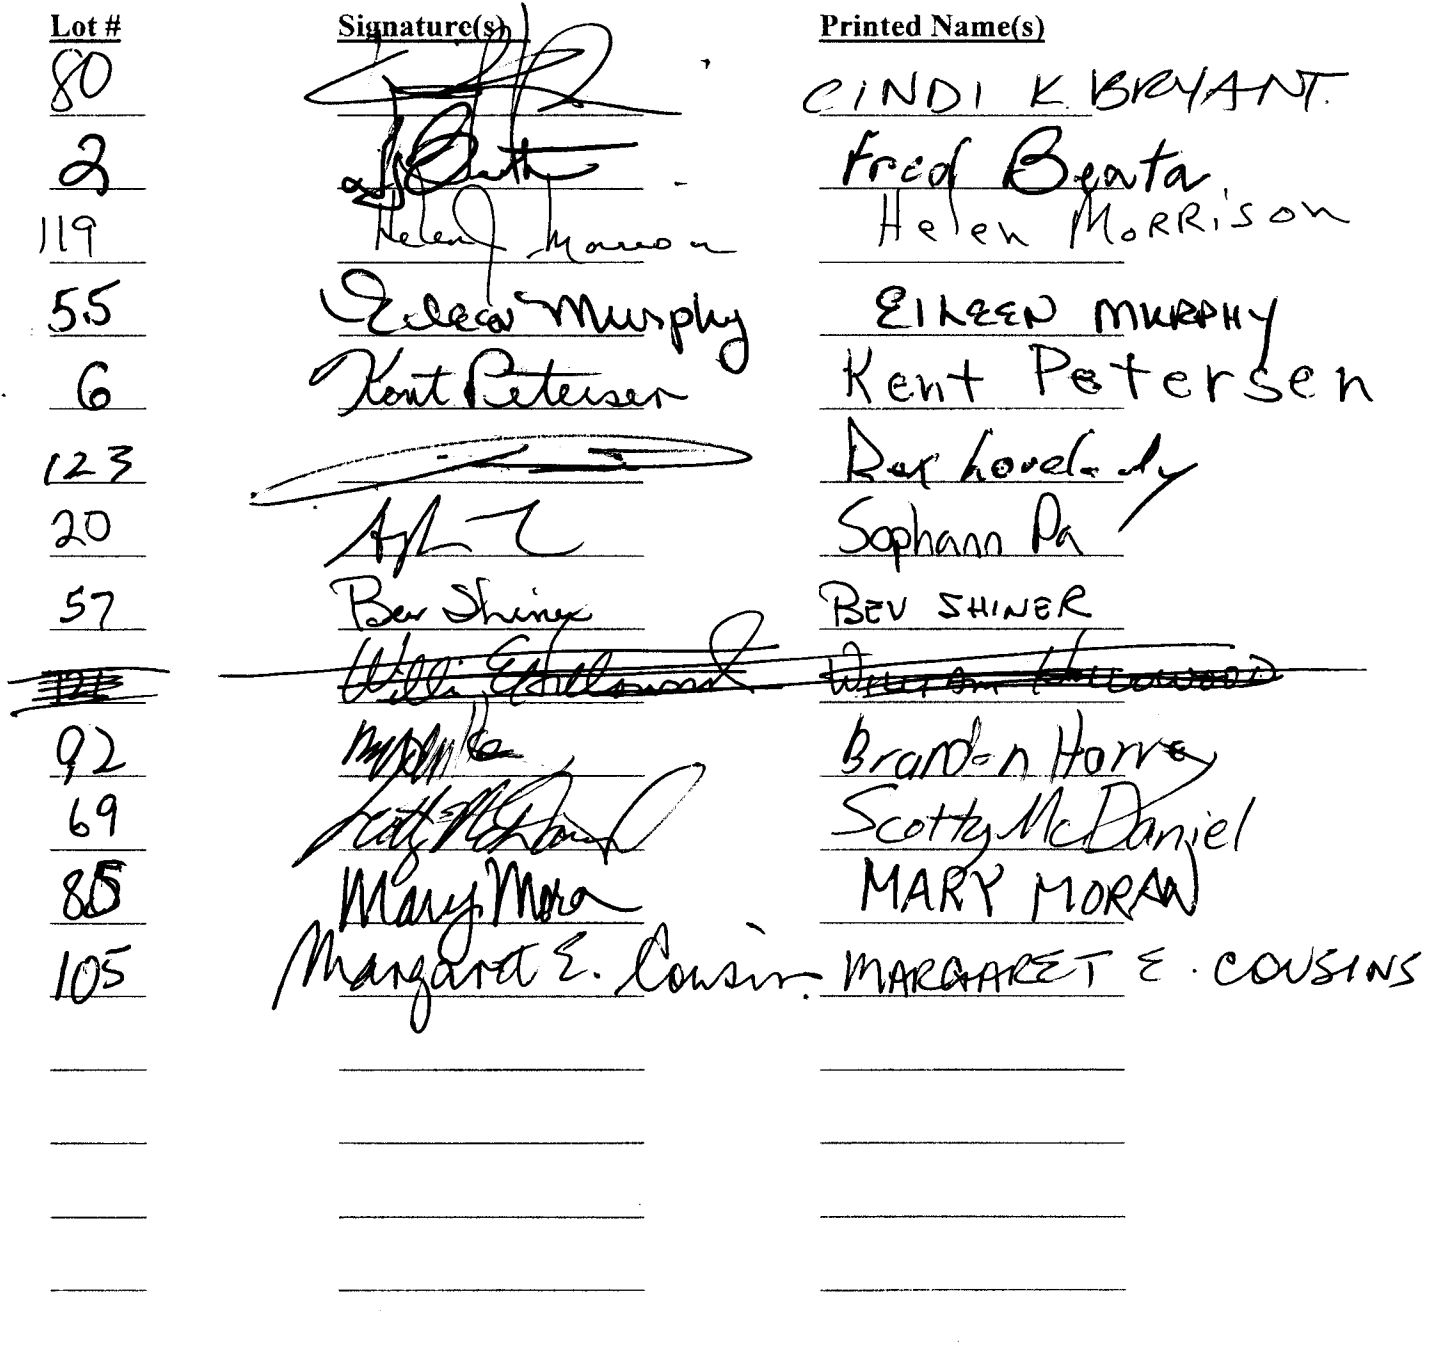 Lot # Signature(s) Printed Name(s)
80 CINDI K. BRYANT.
2 Fred Beata
119 Helen J Morrison Helen MORRISON
55 Eileen Murphy EILEEN MURPHY
6 Kent Petersen Kent Petersen
123 Rex Lovelady
20 Sophann Pa
57 Bev Shiner BEV SHINER
William Hollowood
92 Brandon Harvey
69 Scotty McDaniel Scotty McDaniel
85 Mary Moran MARY MORAN
105 Margaret E. Cousins MARGARET E. COUSINS